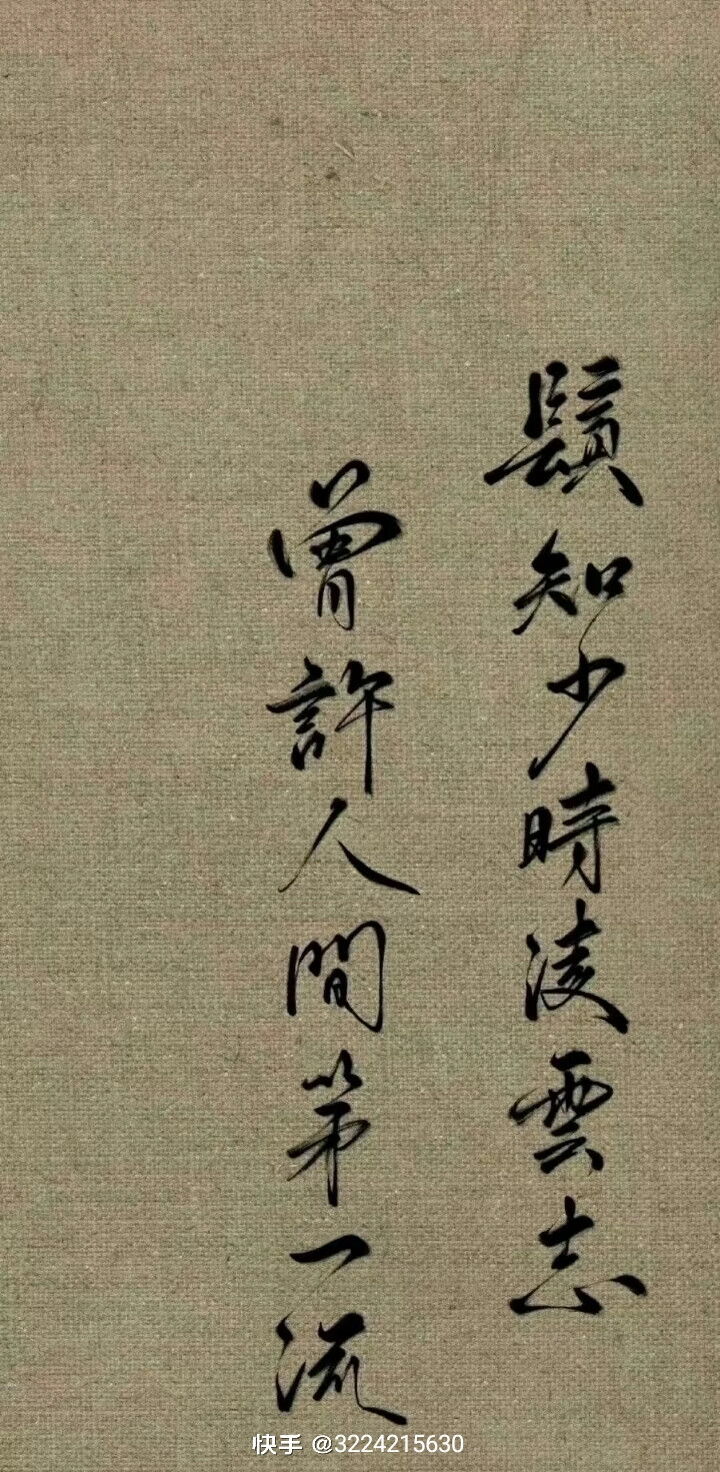 鬚知少時凌雲志
曾許人間第一流
快手 @3224215630